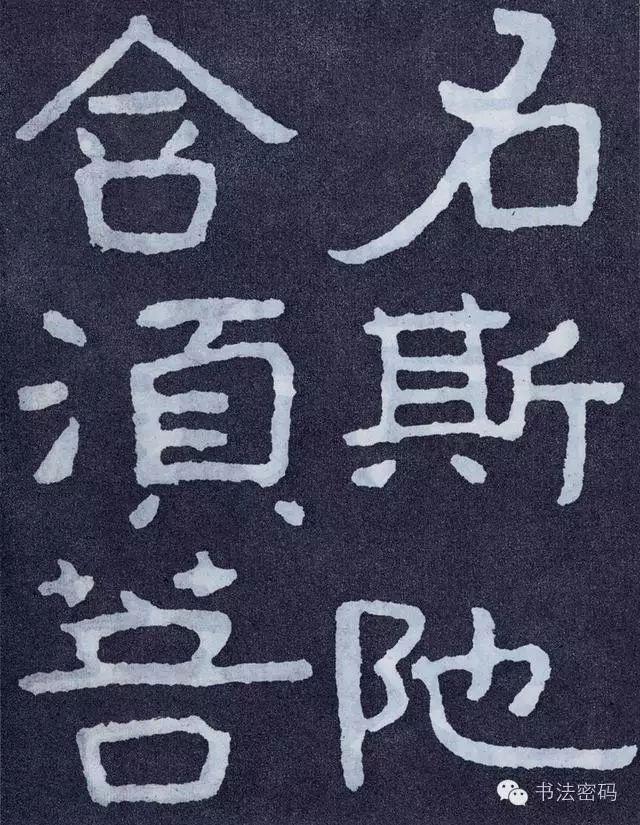 名斯陁
含湏菩
书法密码